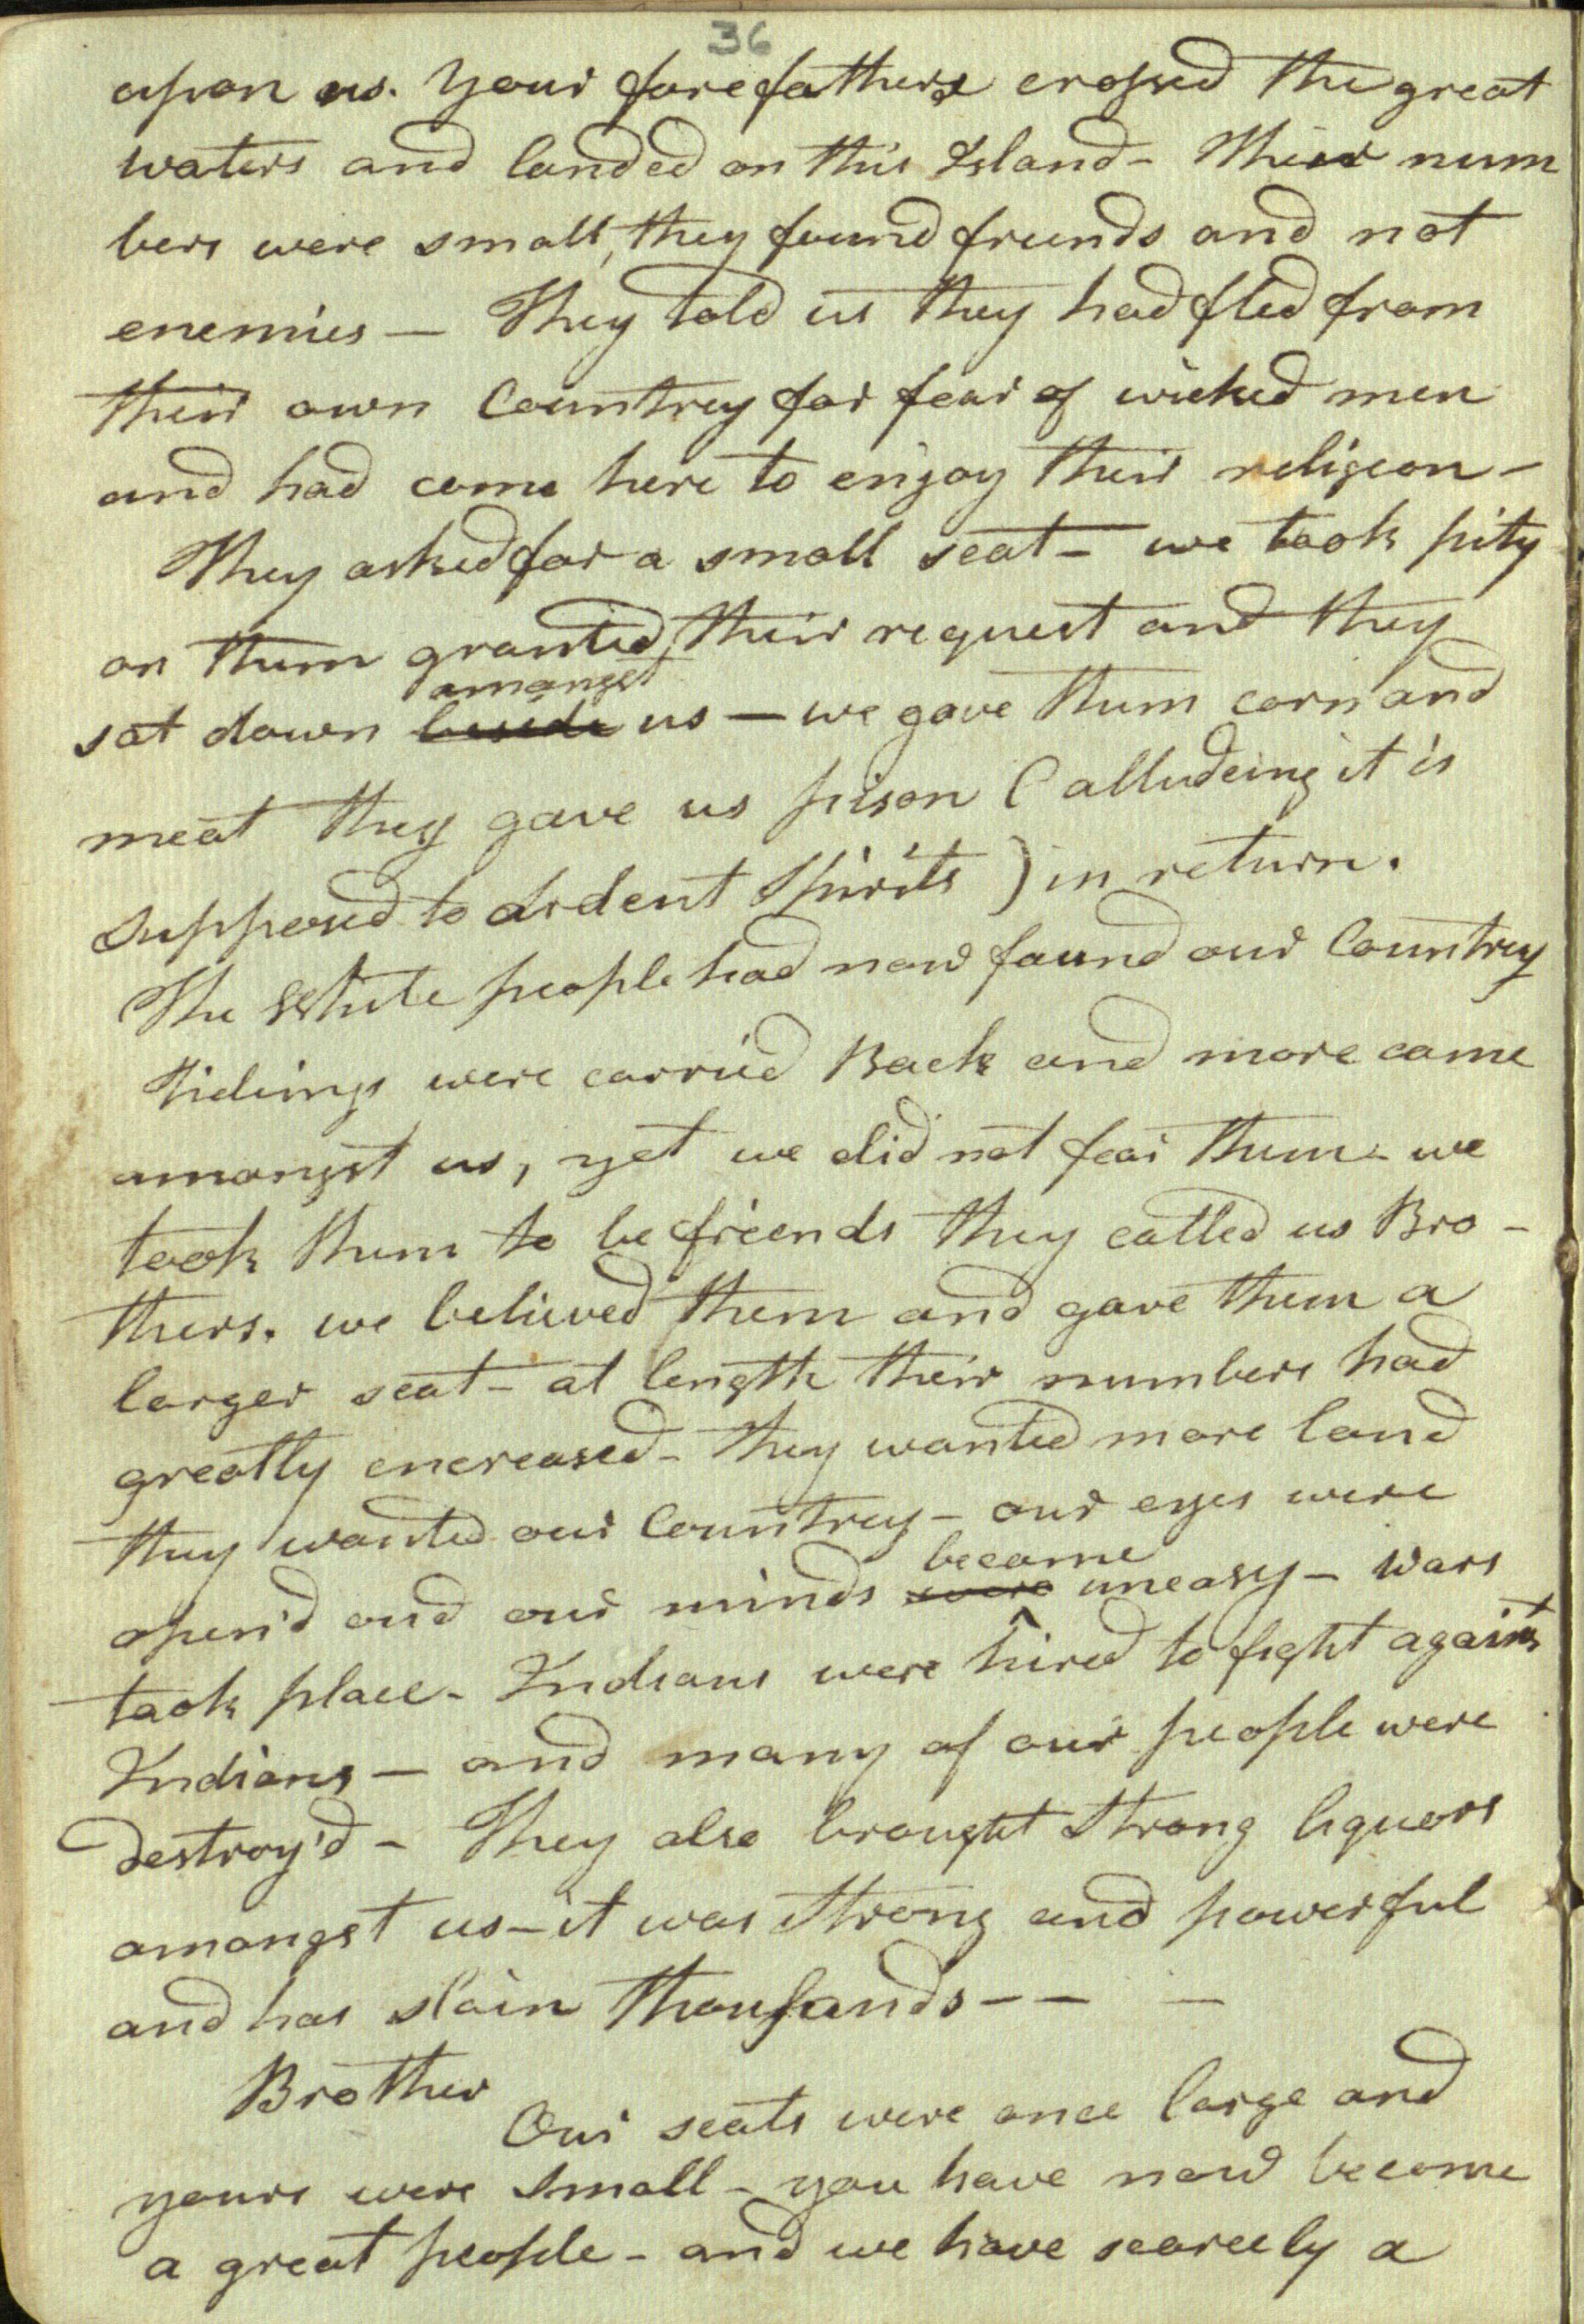 36
upon us. Your forefathers crossed the great
waters and landed on this Island - Their num
bers were small, they found friends and not
enemies — They told us they had fled from
their own Countrey for fear of wicked men
and had come here to enjoy their religeon -
They asked for a small seat - we took pity
on them granted their request and they
amongst
sat down beside us — we gave them corn and
meat they gave us pison (alludeing it is
supposed to Ardent Spirits) in return.
The White people had now found our Countrey
tidings were carried Back and more came
amongst us, yet we did not fear them - we
took them to be friends they called us Bro -
thers. we believed them and gave them a
larger seat - at length their numbers had
greatly encreased - they wanted more land
they wanted our Countrey - our eyes were
became
open'd and our minds were uneasy - Wars
took place - Indians were hired to fight against
Indians — and many of our people were
destroy'd - They also brought Strong liquors
amongst us - it was Strong and powerful
and has slain thousands - - -
Brother
Our seats were once large and
yours were small - you have now become
a great people - and we have scarcely a